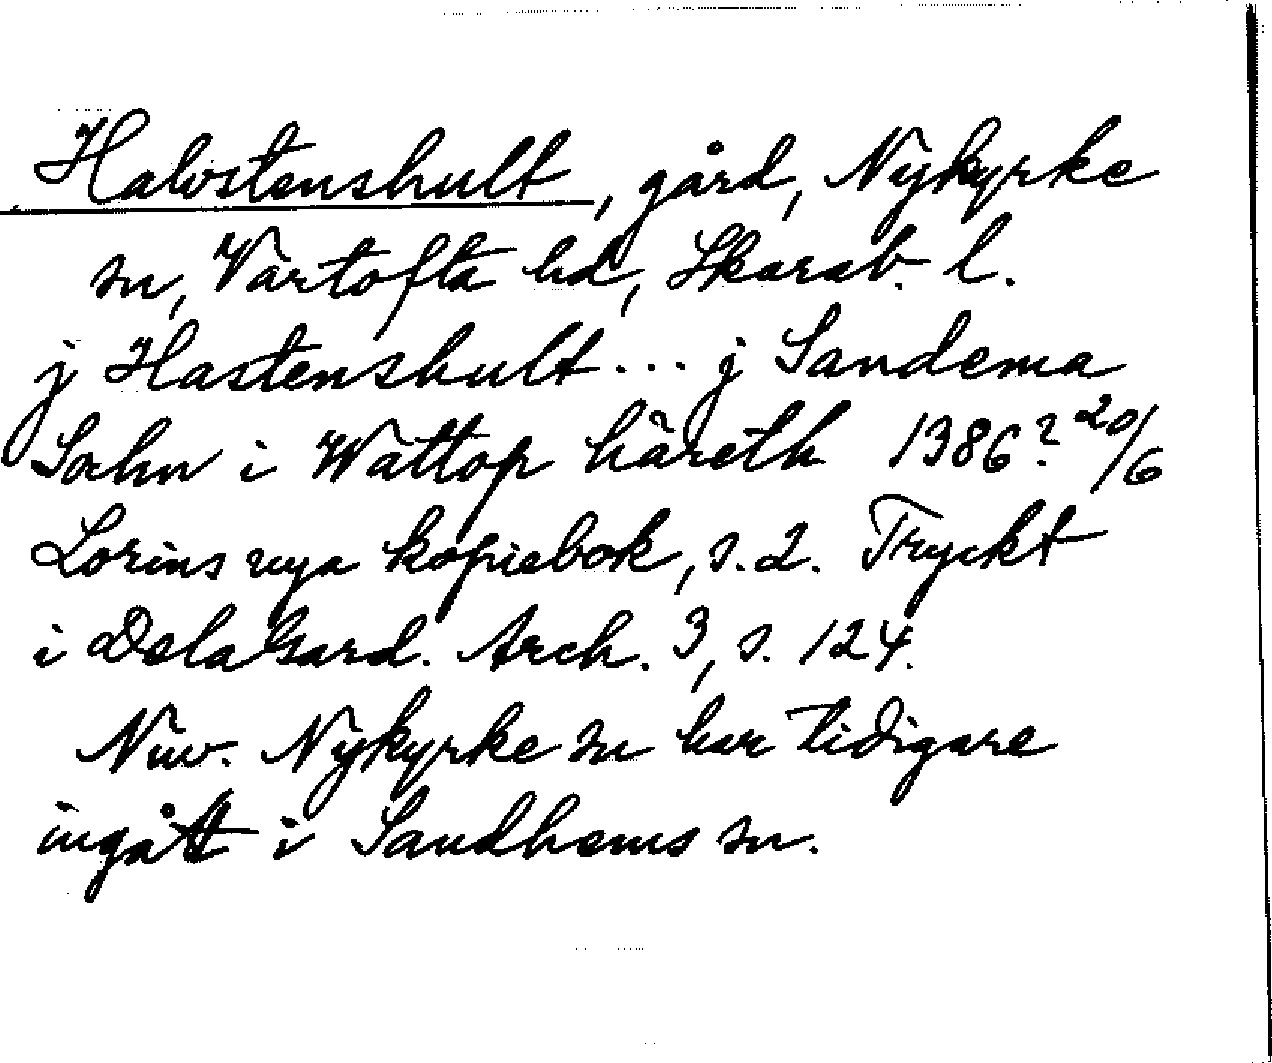 Halvstenshult, gård, Nykyrke
sn, Vartofta hd, Skarab. l.
j Hastenshult... j Sandema
Sochn i Wattop häreth 1386? 20/6
Lorins nya kopiebok, s. 2. Tryckt
i DelaGard. Arch. 3, s. 124.
Nuv. Nykyrke sn har tidigare
ingått i Sandhems sn.